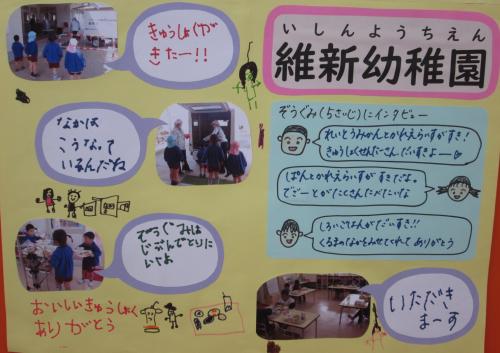 きゅうしょくが
きたー!!
いしんようちえん
維新幼稚園
なかは
こうなって
いるんだね
ぞうぐみ(5さいじ)にインタビュー
れいとうみかんとかれえらいすがすき!
きゅうしょくせんたーさん、だいすきよー
ぱんとかれえらいすがすきだよ。
でざーとがたくさんたべたいな
しろいごはんがだいすき!!
くるまのなかをみせてくれて ありがとう
ぞうぐみは
じぶんでとりに
いくよ
おいしいきゅうしょく
ありがとう
いただき
まーす